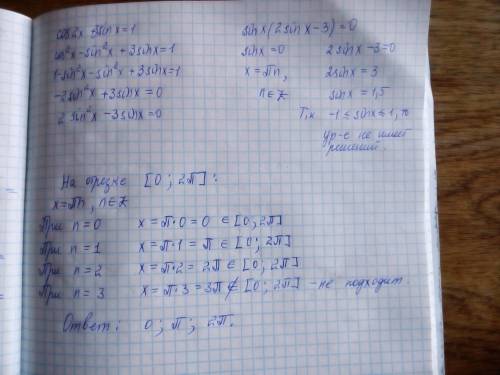 cos2x + 3sinx = 1
cos²x - sin²x + 3sinx = 1
1 - sin²x - sin²x + 3sinx = 1
-2sin²x + 3sinx = 0
2 sin²x - 3sinx = 0
sinx (2sinx - 3) = 0
sinx = 0
x = πn,
n ∈ Z
2sinx - 3 = 0
2sinx = 3
sinx = 1,5
Т.к -1 ≤ sinx ≤ 1, то
ур-е не имеет
решений.
На отрезке [0 ; 2π] :
x = πn, n ∈ Z
При n = 0 x = π·0 = 0 ∈ [0; 2π]
При n = 1 x = π·1 = π ∈ [0; 2π]
При n = 2 x = π·2 = 2π ∈ [0; 2π]
При n = 3 x = π·3 = 3π ∉ [0; 2π] - не подходит.
Ответ: 0 ; π ; 2π.